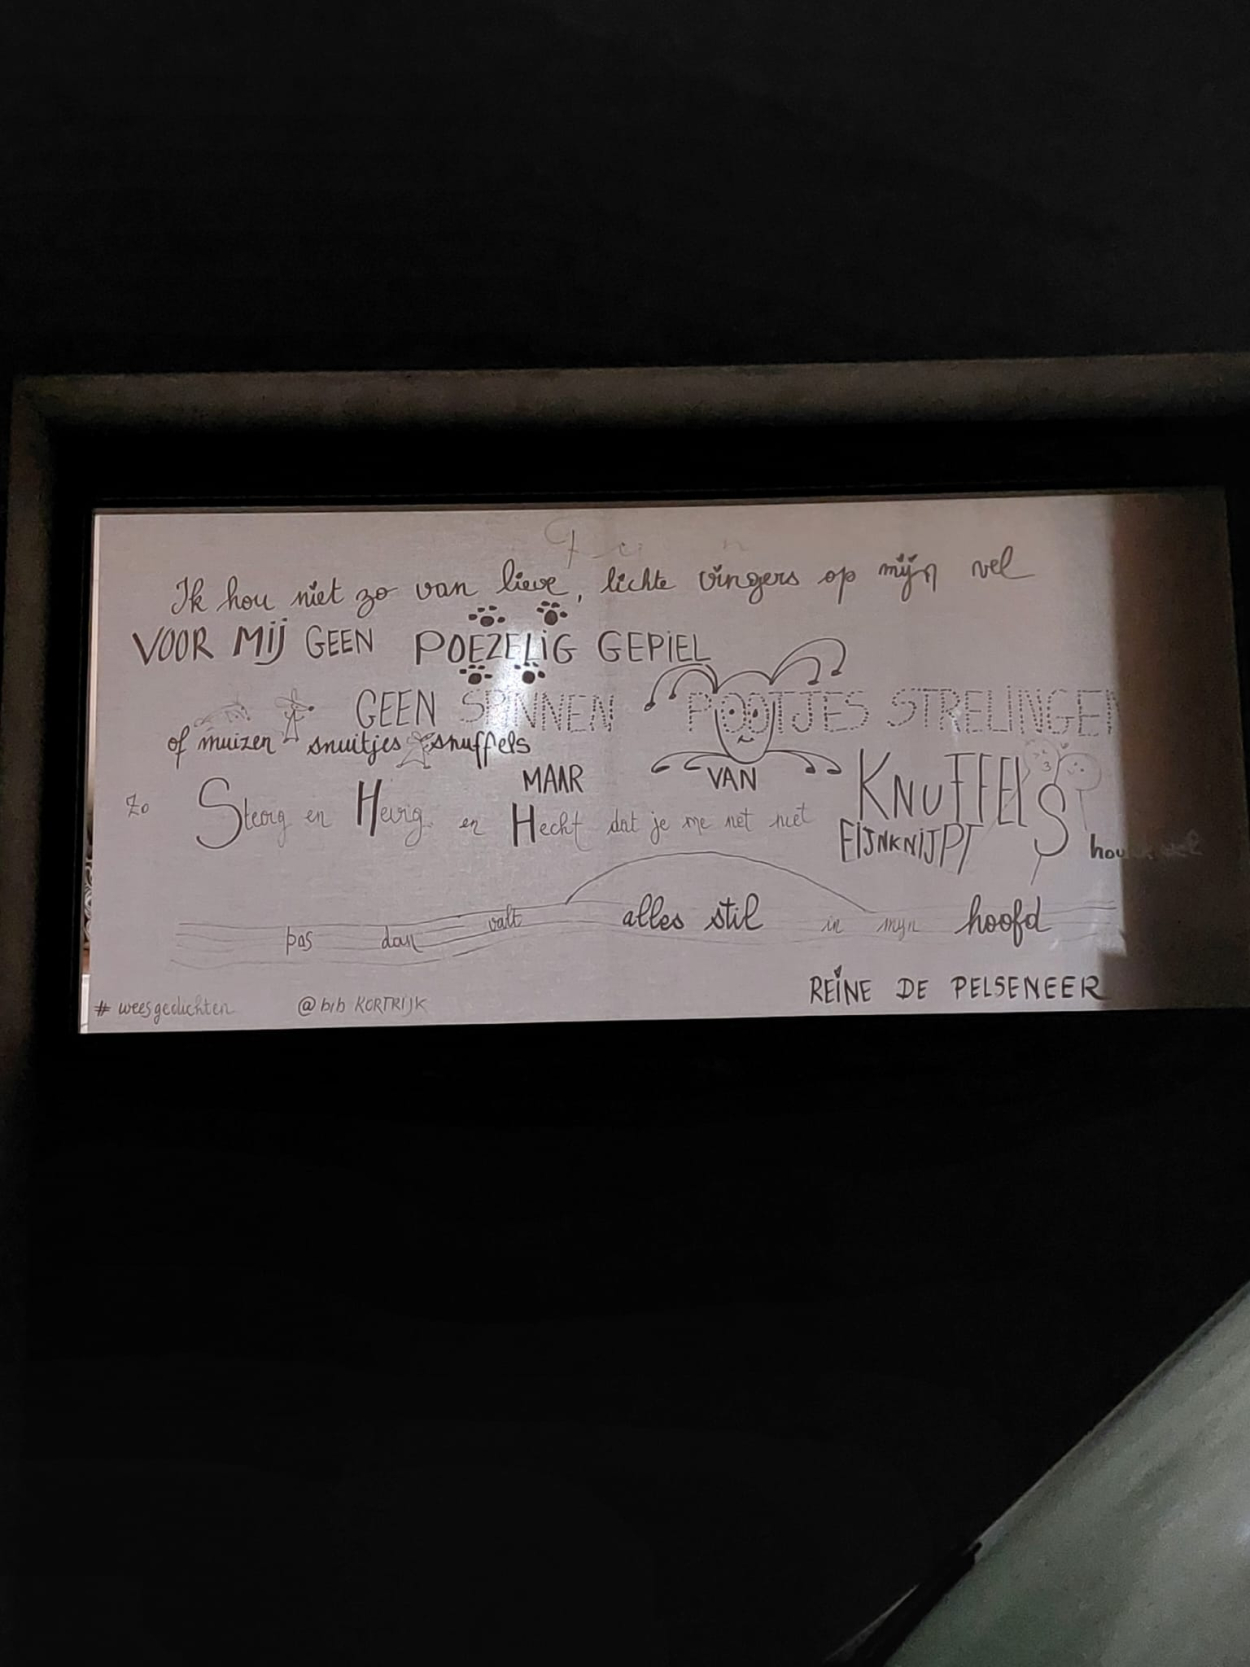 Ik hou niet zo van lieve, lichte vingers op mijn vel
VOOR MIJ GEEN POEZELIG GEPIEL
GEEN SPINNEN POOTJES STRELINGEN
of muizen snuitjes snuffels
MAAR VAN KNUFFELS hou wel
Zo Stevig en Hevig en Hecht dat je me net niet FIJNKNIJPT
pas dan valt alles stil in mijn hoofd
REINE DE PELSENEER
#weesgedichten @bib KORTRIJK